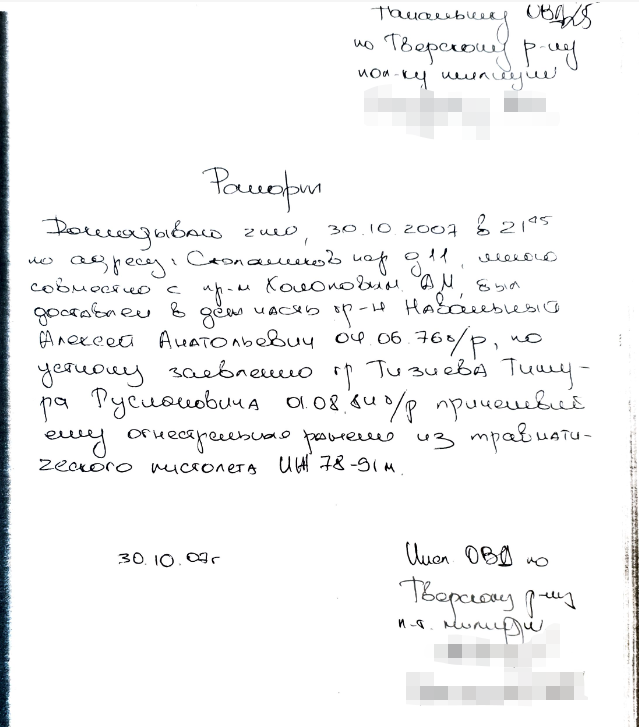 Начальнику ОВД
по Тверскому р-ну
пол-ку милиции
Рапорт
Докладываю что, 30.10.2007 в 21 45
по адресу: Столешников пер д 11, мною
совместно с пр-м Колоповым А М, был
доставлен в деж часть гр-н Навальный
Алексей Анатольевич 04.06.76г/р, по
устному заявлению гр Тизиева Тиму-
ра Руслановича 01.08.84г/р причинивший
ему огнестрельное ранение из травмати-
ческого пистолета ИЖ 78-9Тм.
30.10.07г
Инсп ОВД по
Тверскому р-ну
л-т. милиции